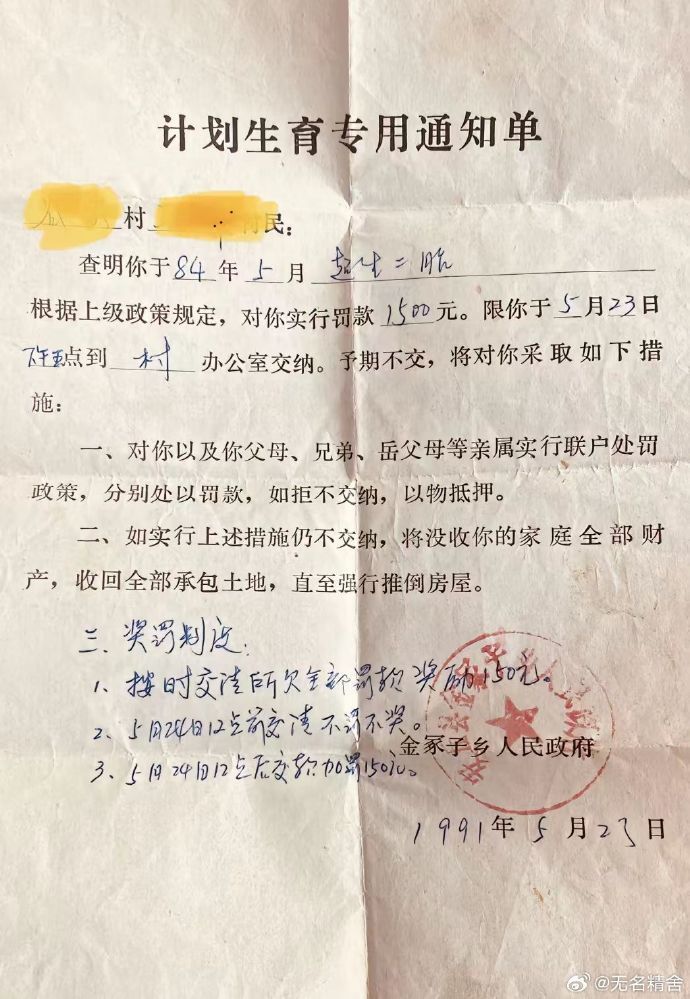 计划生育专用通知单
村 村民：
查明你于84年5月 超生二胎
根据上级政策规定，对你实行罚款1500元。限你于5月23日
下午五点到 村 办公室交纳。予期不交，将对你采取如下措
施：
一、对你以及你父母、兄弟、岳父母等亲属实行联户处罚
政策，分别处以罚款，如拒不交纳，以物抵押。
二、如实行上述措施仍不交纳，将没收你的家庭全部财
产，收回全部承包土地，直至强行推倒房屋。
三、奖罚制度：
1、按时交清所欠全部罚款奖励150元。
2、5月24日12点前交清不罚不奖。
金冢子乡人民政府
3、5月24日12点后交款加罚150元。
1991年5月23日
@无名精舍